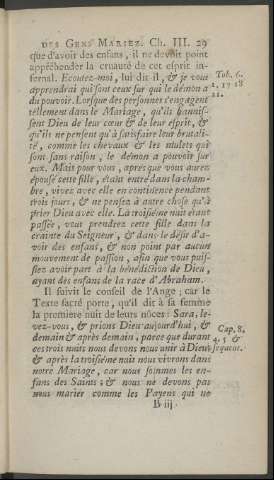 DES GENS MARIEZ. Ch. III. 29
que d'avoir des enfans, il ne devoit point
appréhender la cruauté de cet esprit in-
fernal. Ecoutez-moi, lui dit-il, & je vous
apprendrai qui sont ceux sur qui le démon a
du pouvoir. Lorsque des personnes s'engagent
tellement dans le Mariage, qu'ils bannis-
sent Dieu de leur cœur & de leur esprit, &
qu'ils ne pensent qu'à satisfaire leur brutali-
té, comme les chevaux & les mulets qui
sont sans raison, le démon a pouvoir sur
eux. Mais pour vous, après que vous aurez
épousé cette fille, étant entré dans la cham-
bre, vivez avec elle en continence pendant
trois jours, & ne pensez à autre chose qu'à
prier Dieu avec elle. La troisiéme nuit étant
passée, vous prendrez cette fille dans la
crainte du Seigneur, & dans le désir d'a-
voir des enfans, & non point par aucun
mouvement de passion, afin que vous puis-
siez avoir part à la bénédiction de Dieu,
ayant des enfans de la race d'Abraham.
Il suivit le conseil de l'Ange; car le
Texte sacré porte, qu'il dit à sa femme
la premiere nuit de leurs nôces: Sara, le-
vez-vous, & prions Dieu aujourd'hui, &
demain & après demain, parce que durant
ces trois nuits nous devons nous unir à Dieu:
& après la troisiéme nuit nous vivrons dans
notre Mariage, car nous sommes les en-
fans des Saints; & nous ne devons pas
nous marier comme les Payens qui ne
B iij
Tob. 6.
17 18
22.
Cap. 8.
4. 5 &
sequent.